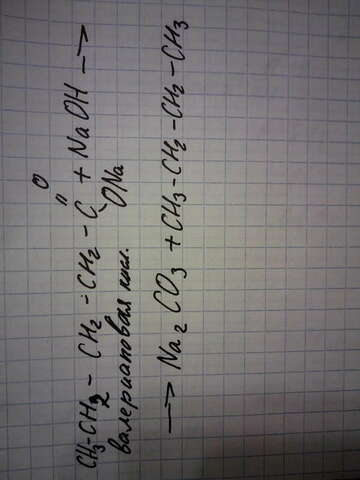 O
CH3-CH2-CH2-CH2-C + NaOH →
ONa
валериановая кисл.
→ Na2CO3 + CH3-CH2-CH2-CH3